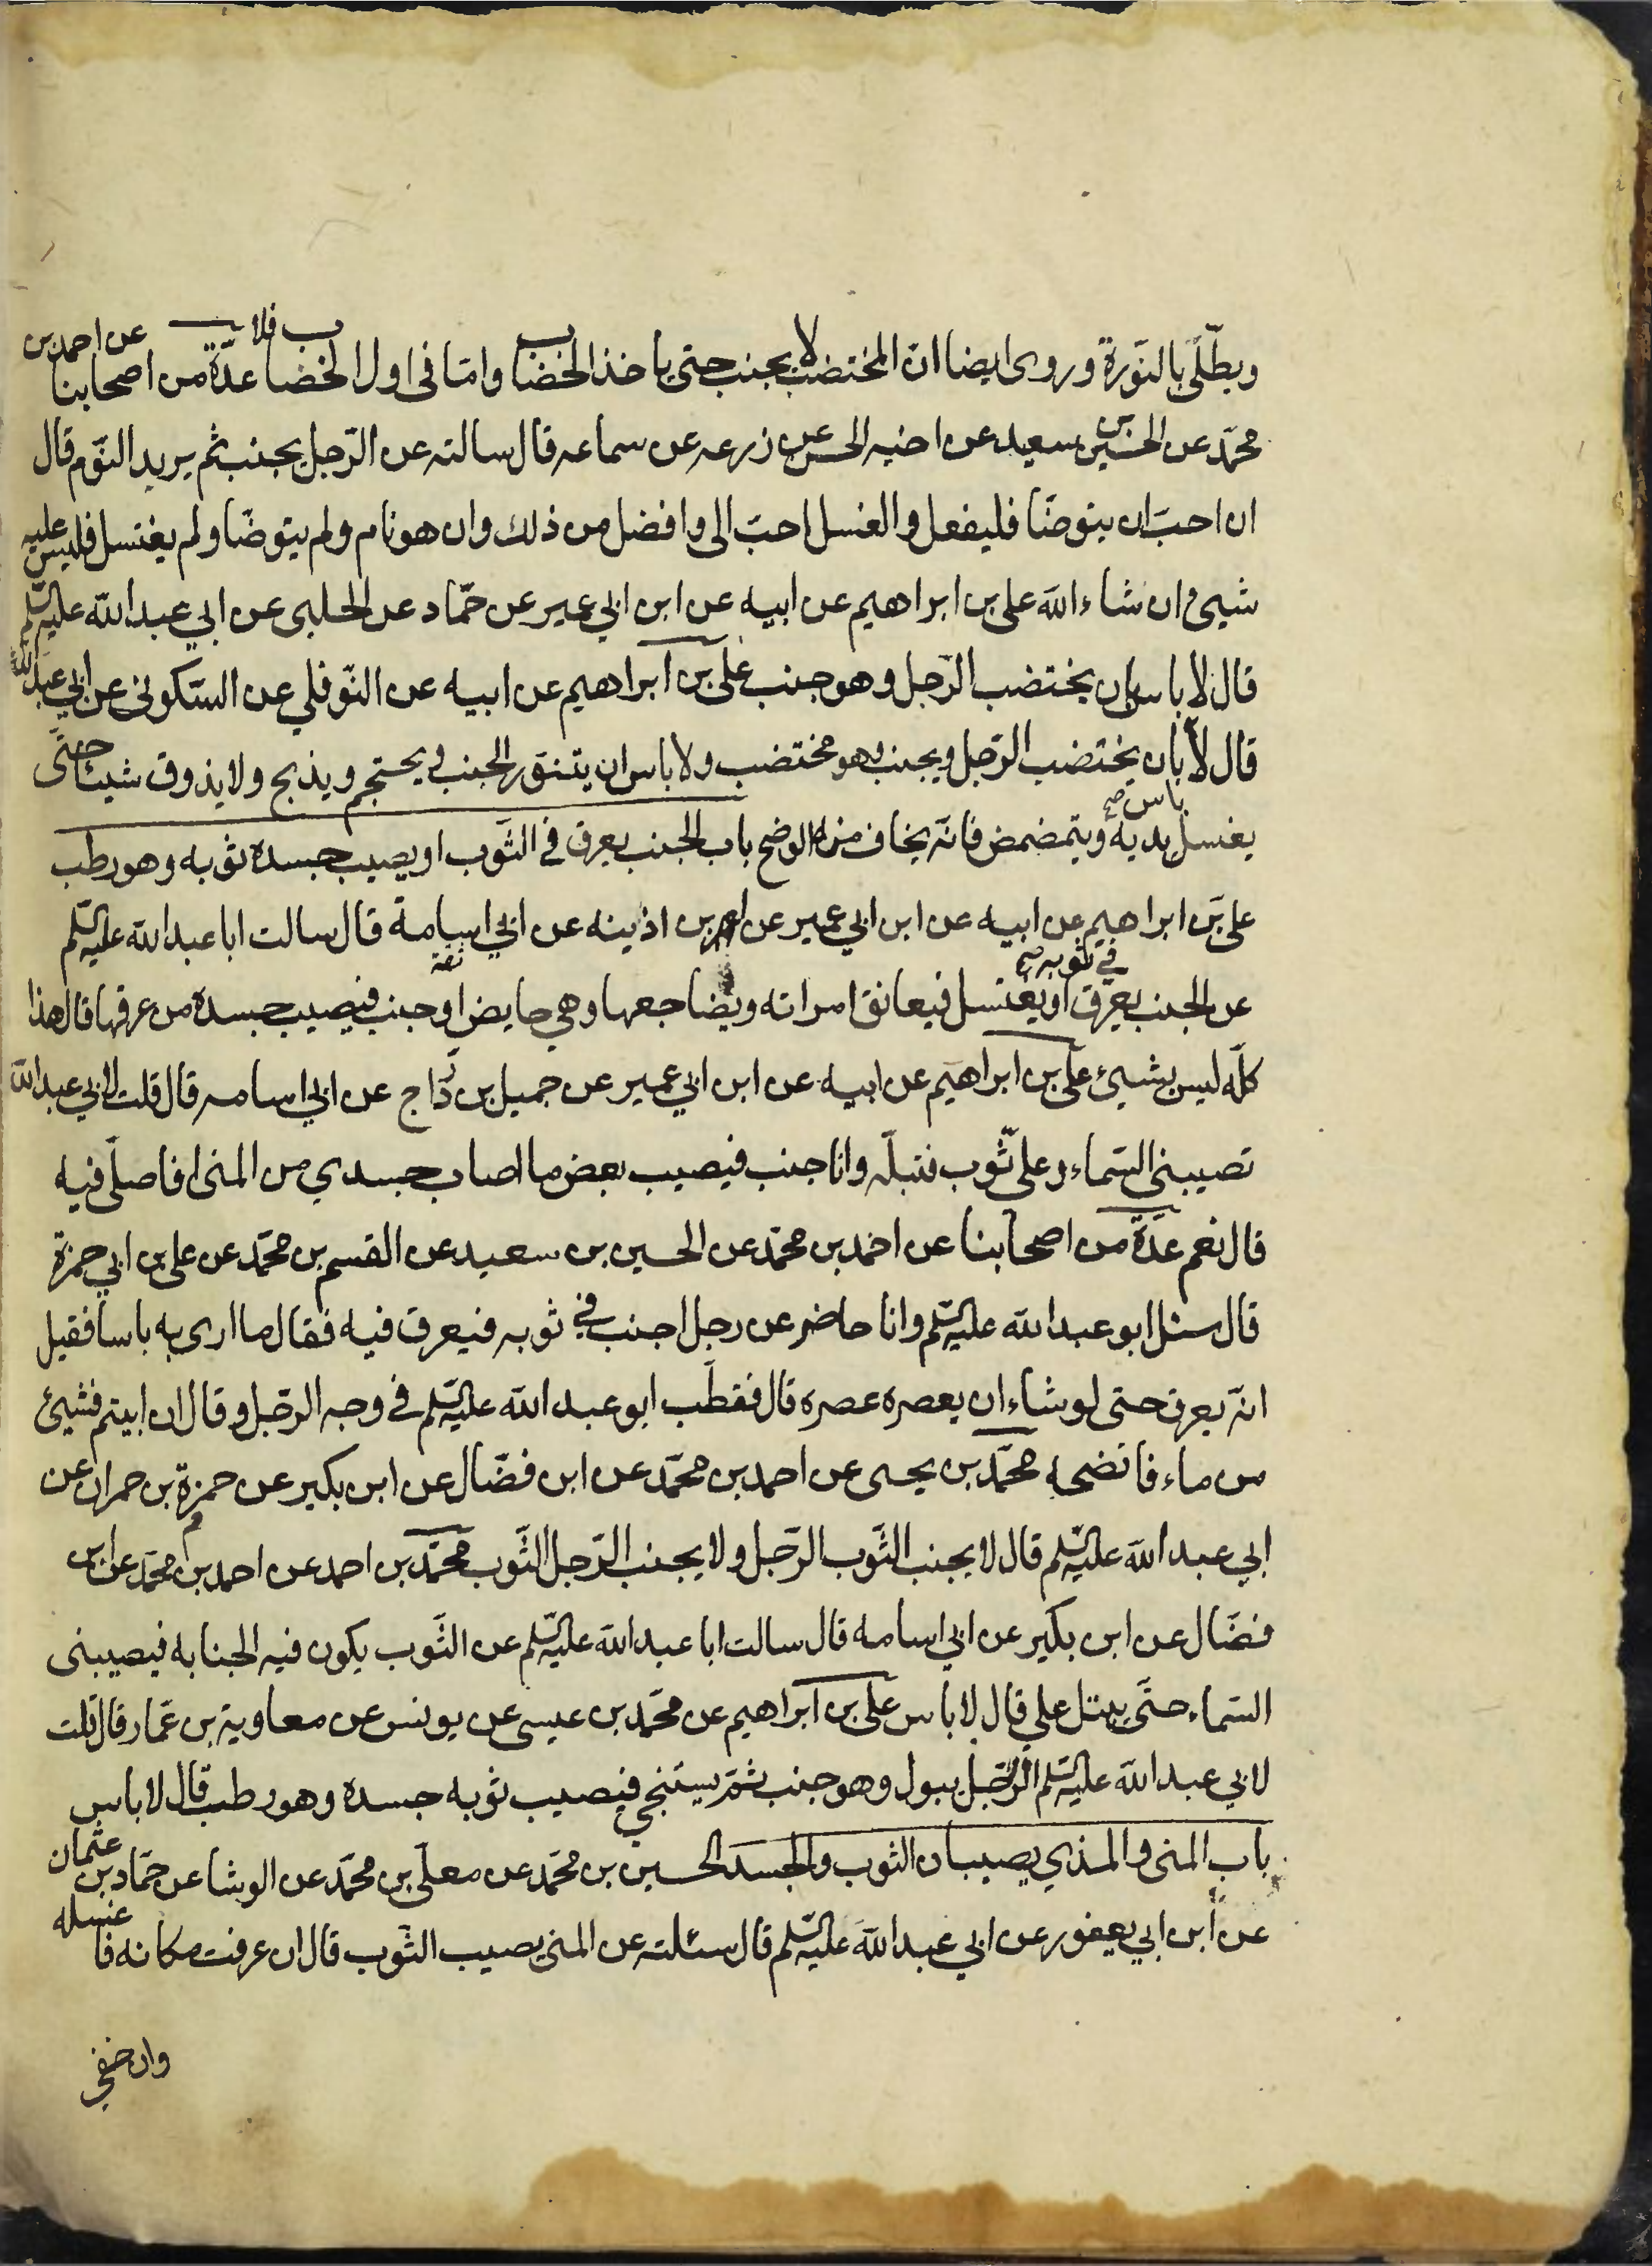 ويطّلى بالنّورة وروى ايضا انّ المختضب لا يجنب حتى ياخذ الخضاب وامّا فى اول الخضاب فلا عدّة من اصحابنا عن احمد بن
محمّد عن الحسين بن سعيد عن اخيه الحسن عن زرعه عن سماعه قال سالته عن الرّجل يجنب ثم يريد النّوم قال
ان احبّ ان يتوضّا فليفعل والغسل احبّ الى وافضل من ذلك وان هو نام ولم يتوضّا ولم يغتسل فليس عليه
شيئ ان شاء الله على بن ابراهيم عن ابيه عن ابن ابي عمير عن حمّاد عن الحلبى عن ابي عبد الله عليه السّلم
قال لا باس بان يختضب الرّجل وهو جنب على بن ابراهيم عن ابيه عن النّوفلي عن السّكونى عن ابي عبد الله
قال لا باس بان يختضب الرّجل ويجنب وهو مختضب ولا باس ان يتنوّر الجنب ويحتجم ويذبح ولا يذوق شيئا حتّى
يغسل يديه ويتمضمض فانّه يخاف منه الوضح باب الجنب يعرق في الثّوب او يصيب جسده ثوبه وهو رطب
على بن ابراهيم عن ابيه عن ابن ابي عمير عن عمر بن اذينه عن ابي اسامة قال سالت ابا عبد الله عليه السّلم
عن الجنب يعرق في ثوبه صح او يغتسل فيعانق امراته ويضاجعها وهي حايض او جنب فيصيب جسده من عرقها قال هذا
كلّه ليس بشيئ على بن ابراهيم عن ابيه عن ابن ابي عمير عن جميل بن درّاج عن ابي اسامه قال قلت لابي عبد الله
تصيبنى السّماء وعلى ثّوب فتبلّه وانا جنب فيصيب بعض ما اصاب جسدي من المنى افاصلّى فيه
قال نعم عدّة من اصحابنا عن احمد بن محمّد عن الحسين بن سعيد عن القسم بن محمّد عن على بن ابي حمزة
قال سئل ابو عبد الله عليه السّلم وانا حاضر عن رجل اجنب في ثوبه فيعرق فيه فقال ما ارى به باسا فقيل
انّه يعرق حتى لو شاء ان يعصره عصره قال فقطّب ابو عبد الله عليه السّلم في وجه الرّجل وقال ان ابيتم فشيئ
من ماء فانضحه محمّد بن يحيى عن احمد بن محمّد عن ابن فضّال عن ابن بكير عن حمزة بن حمران عن
ابي عبد الله عليه السّلم قال لا يجنب الثّوب الرّجل ولا يجنب الرّجل الثّوب محمّد بن احمد عن احمد بن محمّد عن ابن
فضّال عن ابن بكير عن ابي اسامه قال سالت ابا عبد الله عليه السّلم عن الثّوب يكون فيه الجنابه فيصيبنى
السّماء حتّى يبتل علي قال لا باس على بن ابراهيم عن محمّد بن عيسى عن يونس عن معاوية بن عمّار قال قلت
لابي عبد الله عليه السّلم الرّجل يبول وهو جنب ثمّ يستنجي فيصيب ثوبه جسده وهو رطب قال لا باس
باب المنى والمذي يصيبان الثوب والجسد الحسين بن محمّد عن معلّى بن محمّد عن الوشا عن حمّاد بن عثمان
عن ابن ابي يعفور عن ابي عبد الله عليه السّلم قال سئلته عن المنى يصيب الثّوب قال ان عرفت مكانه فاغسله
وان خفي